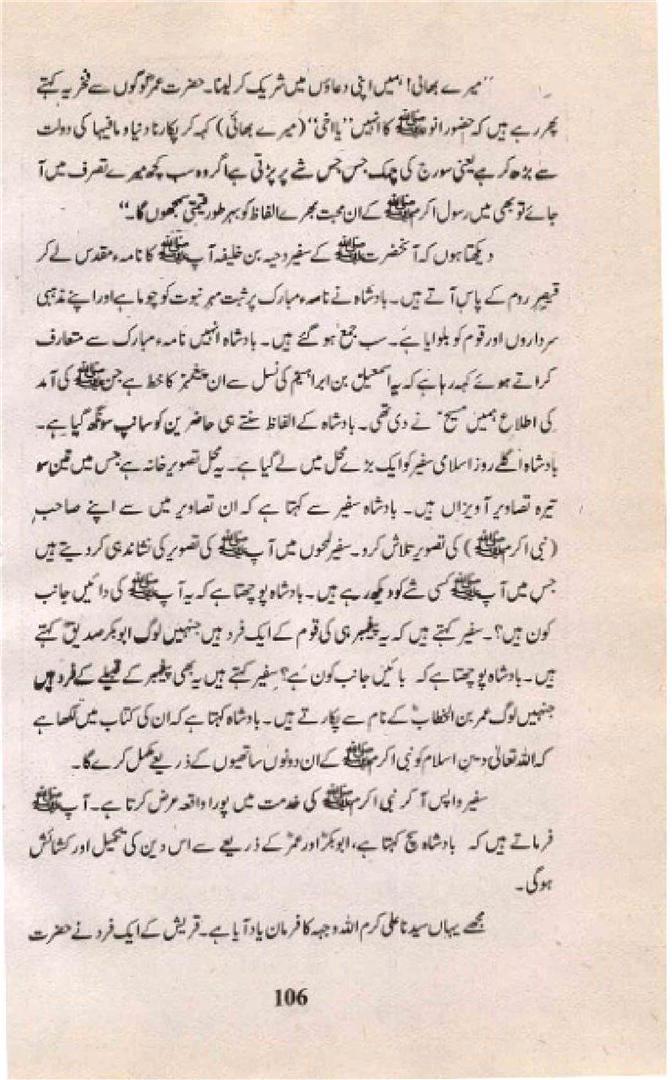 "میرے بھائی! ہمیں اپنی دعاؤں میں شریک کر لینا۔ حضرت عمرؓ لوگوں سے فخریہ کہتے
پھر رہے ہیں کہ حضور انورﷺ کا انہیں "یا اخی" (میرے بھائی) کہہ کر پکارنا دنیا و مافیہا کی دولت
سے بڑھ کر ہے یعنی سورج کی چمک جس جس شے پر پڑتی ہے اگر وہ سب کچھ میرے تصرف میں آ
جائے تو بھی میں رسول اکرمﷺ کے ان محبت بھرے الفاظ کو بہر طور قیمتی سمجھوں گا۔"
دیکھتا ہوں کہ آنحضرتﷺ کے سفیر دحیہ بن خلیفہ آپﷺ کا نامہء مقدس لے کر
قیصرِ روم کے پاس آتے ہیں۔ بادشاہ نے نامہء مبارک پر ثبت مہرِ نبوت کو چوما ہے اور اپنے مذہبی
سرداروں اور قوم کو بلوایا ہے۔ سب جمع ہو گئے ہیں۔ بادشاہ انہیں نامہء مبارک سے متعارف
کراتے ہوئے کہہ رہا ہے کہ یہ اسمعیل بن ابراہیم کی نسل سے ان پیغمبرؐ کا خط ہے جنﷺ کی آمد
کی اطلاع ہمیں مسیحؑ نے دی تھی۔ بادشاہ کے الفاظ سنتے ہی حاضرین کو سانپ سونگھ گیا ہے۔
بادشاہ اگلے روز اسلامی سفیر کو ایک بڑے محل میں لے گیا ہے۔ یہ محل تصویر خانہ ہے جس میں تین سو
تیرہ تصاویر آویزاں ہیں۔ بادشاہ سفیر سے کہتا ہے کہ ان تصاویر میں سے اپنے صاحب
(نبی اکرمﷺ) کی تصویر تلاش کرو۔ سفیر لمحوں میں آپﷺ کی تصویر کی نشاندہی کر دیتے ہیں
جس میں آپﷺ کسی شے کو دیکھ رہے ہیں۔ بادشاہ پوچھتا ہے کہ یہ آپﷺ کی دائیں جانب
کون ہیں؟۔ سفیر کہتے ہیں کہ یہ پیغمبر ہی کی قوم کے ایک فرد ہیں جنہیں لوگ ابوبکر صدیقؓ کہتے
ہیں۔ بادشاہ پوچھتا ہے کہ بائیں جانب کون ہے؟ سفیر کہتے ہیں یہ بھی پیغمبر کے قبیلے کے فرد ہیں
جنہیں لوگ عمر بن الخطابؓ کے نام سے پکارتے ہیں۔ بادشاہ کہتا ہے کہ ان کی کتاب میں لکھا ہے
کہ اللہ تعالیٰ دینِ اسلام کو نبی اکرمﷺ کے ان دونوں ساتھیوں کے ذریعے مکمل کرے گا۔
سفیر واپس آ کر نبی اکرمﷺ کی خدمت میں پورا واقعہ عرض کرتا ہے۔ آپﷺ
فرماتے ہیں کہ بادشاہ سچ کہتا ہے، ابوبکرؓ اور عمرؓ کے ذریعے سے اس دین کی تکمیل اور کشائش
ہوگی۔
مجھے یہاں سیدنا علی کرم اللہ وجہہ کا فرمان یاد آیا ہے۔ قریش کے ایک فرد نے حضرت
106